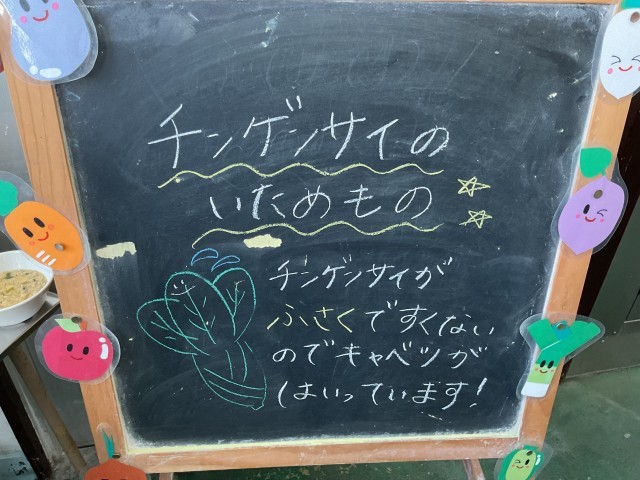 チンゲンサイの
いためもの
チンゲンサイが
ふさくですくない
のでキャベツが
はいっています!